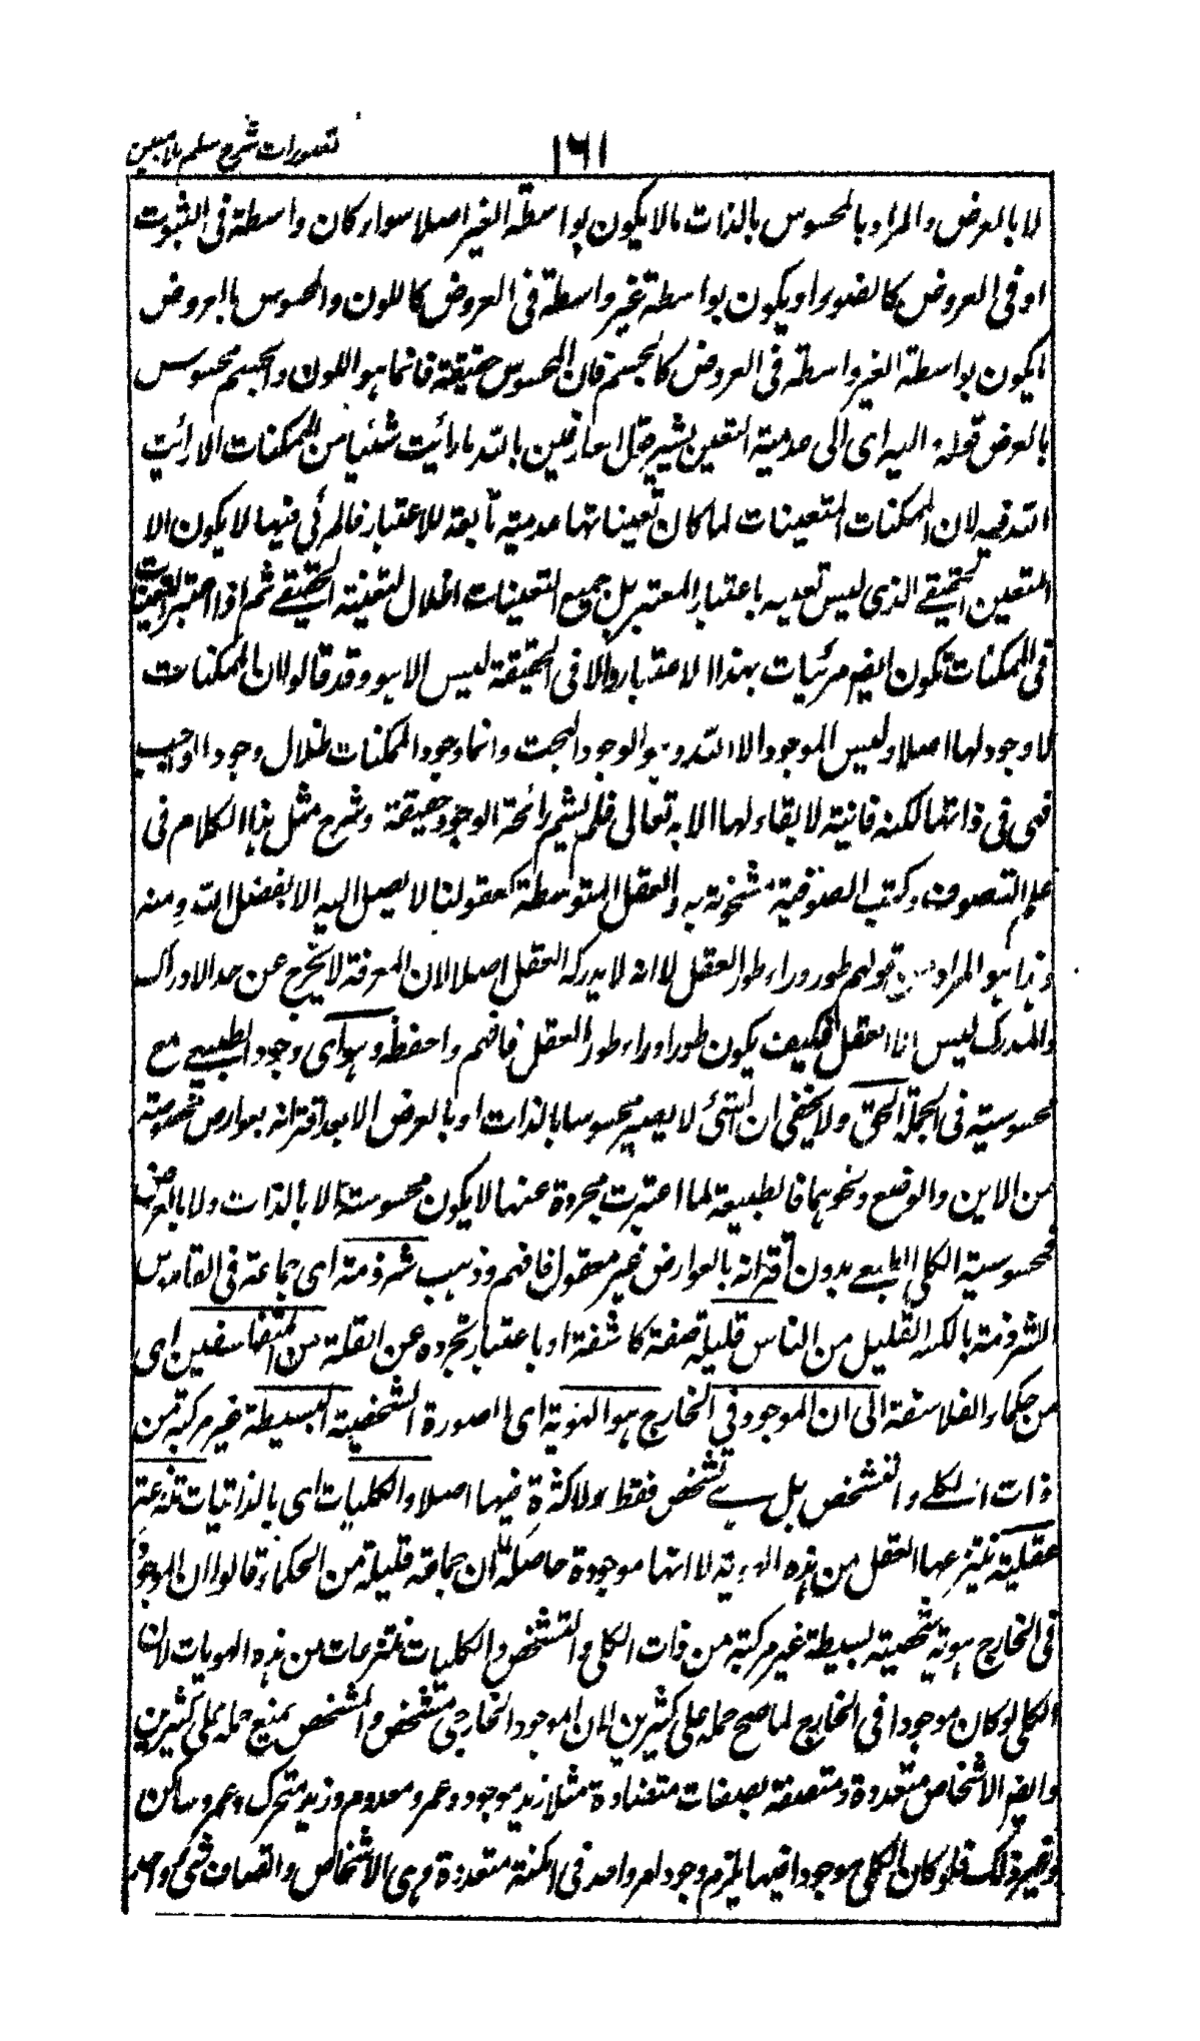 ١٦١
تصورات شرح سلم ملا مبين
لا بالعرض والمراد بالمحسوس بالذات ما لا يكون بواسطة الغير اصلا سواء كان واسطة فى الثبوت
او فى العروض كالضوء او يكون بواسطة غير واسطة فى العروض كاللون والمحسوس بالعروض
ما يكون بواسطة الغير واسطة فى العروض كالجسم فان المحسوس حقيقة فانما هو اللون والجسم محسوس
بالعرض قوله واليه اى الى عدمية التعين يشير قول العارفين بالله ما رأيت شيئا من الممكنات الا رأيت
الله فيه لان الممكنات المتعينات لما كان تعيناتها عدمية تابعة للاعتبار فالمرئى فيها لا يكون الا
المتعين الحقيقے الذى ليس تعينه باعتبار المعتبر بل جميع التعينات اظلال لتعينه الحقيقے ثم اذا اعتبر التعينات
فى الممكنات تكون ايضا مرئيات بهذا الاعتبار والا فى الحقيقة ليس الا هو وقد قالوا ان الممكنات
لا وجود لها اصلا وليس الموجود الا الله وهو الوجود البحت وانما وجود الممكنات ظلال وجود الواجب
فهى فى ذاتها لكنه فانية لا بقاء لها الا به تعالى فلم يشم رائحة الوجود حقيقة وشرح مثل هذا الكلام فى
علم التصوف وكتب الصوفية مشحونة به والعقل المتوسطة كعقولنا لا يصل اليه الا بفضل الله ومنه
وهذا هو المراد من قولهم طور وراء طور العقل لا انه لا يدركه العقل اصلا لان المعرفة لا يخرج عن حد الادراك
والمدرك ليس الا العقل فكيف يكون طورا وراء طور العقل فافهم واحفظه وهو اى وجود الطبيعے مع
محسوسية فى الجملة الحق ولا يخفى ان الشئ لا يصير محسوسا بالذات او بالعرض الا بعد اقترانه بعوارض مخصوصة
من الاين والوضع ونحوهما فالطبيعة لما اعتبرت مجردة عنها لا يكون محسوسة الا بالذات ولا بالعرض
فمحسوسية الكلى الطبعے بدون اقترانه بالعوارض غير معقول فافهم وذهب شرذمة اى جماعة فى القاموس
الشرذمة بالكسر القليل من الناس قليلة صفة كاشفة او باعتبار تجرده عن القلة من المتفلسفين اى
من حكماء الفلاسفة الى ان الموجود فى الخارج هو الهوية اى الصورة الشخصية البسيطة غير مركبة من
ذات الكلے والتشخص بل هے تشخص فقط ولا كثرة فيها اصلا والكليات اى بالذاتيات منتزعة
عقلية ينتزعها العقل من هذه الهوية لا انها موجودة حاصله ان جماعة قليلة من الحكماء قالوا ان الموجود
فى الخارج هوية شخصية بسيطة غير مركبة من ذات الكلى والتشخص والكليات منتزعات من هذه الهويات لان
الكلى لو كان موجودا فى الخارج لما صح حمله على كثيرين لان الموجود الخارجى متشخص والمشخص يمنع حمله على كثيرين
وايضا الاشخاص متعددة ومتصفة بصفات متضادة مثلا زيد موجود وعمرو معدوم وزيد متحرك وعمرو ساكن
وغير ذلك فلو كان الكلى موجودا فيها يلزم وجود امر واحد فى امكنة متعددة وهى الاشخاص واتصاف شئ واحد